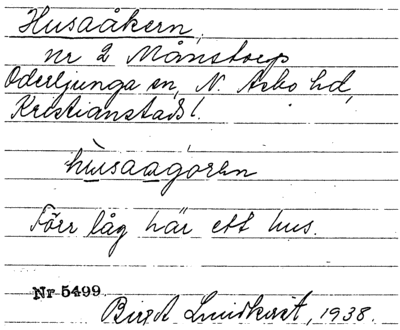 Husaåkern,
nr 2 Månstorp
Oderljunga sn, N. Åsbo hd,
Kristianstads l.
husaagören
Förr låg här ett hus.
Nr 5499
Birgit Lundkvist, 1938.